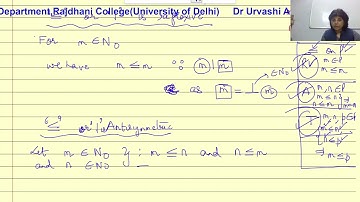 Department, Rajdhani College(University of Delhi) Dr Urvashi A
≤ or '|' is reflexive
For m ∈ N₀
we have m ≤ m ∵ m | m
as m = m
∈ N₀
'≤' or '|' Antisymmetric
Let m ∈ N₀ if m ≤ n and n ≤ m
and n ∈ N₀
≤ on P
m ∈ P
m ≤ m
A
m, n ∈ P
m ≤ n
n ≤ m
T
m ≤ p